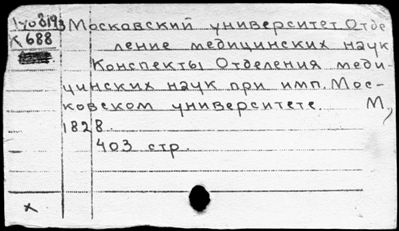 Московский университет. Отде-
К 688
ление медицинских наук
Конспекты Отделения меди-
цинских наук при имп. Мос-
ковском университете. М.,
1828.
403 стр.
х